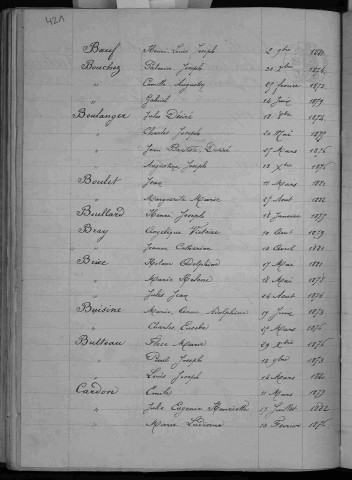 421
Boeuf Henri Louis Joseph 2 9bre
Bouchez Palmire Joseph 20 Xbre 1876
" Camille Augustin 27 février 1873
" Gabriel 1879
Boulanger Jules Désiré 18 1873
" Charles Joseph 20 Mai 1877
" Jean Désiré 27 Mars 1876
" Augustine Joseph 18 Xbre 1876
Boulet Jean 11 Mars 1881
" Marguerite Marie 27 Aout 1882
Buillard Henri Joseph 18 Janvier 1877
Bray Angélique Victoire 10 Aout 1879
" Jeanne Catherine 10 Avril 1881
Brix Adolphine 17 Mai 1881
" Marie 18 Mai 1878
" Jules Jean 24 Aout 1876
Buisine Marie Adolphine 19 Juin 1873
" Charles Eusèbe 27 Mars 1876
Butteau Marie 29 Xbre 1876
" Paul Joseph 12 9bre 1873
" Louis Joseph 14 Mars
Cardon Emile 11 Mars 1877
" Julie Eugénie Henriette 17 Juillet 1882
" Marie Ludivine 10 Février 1876